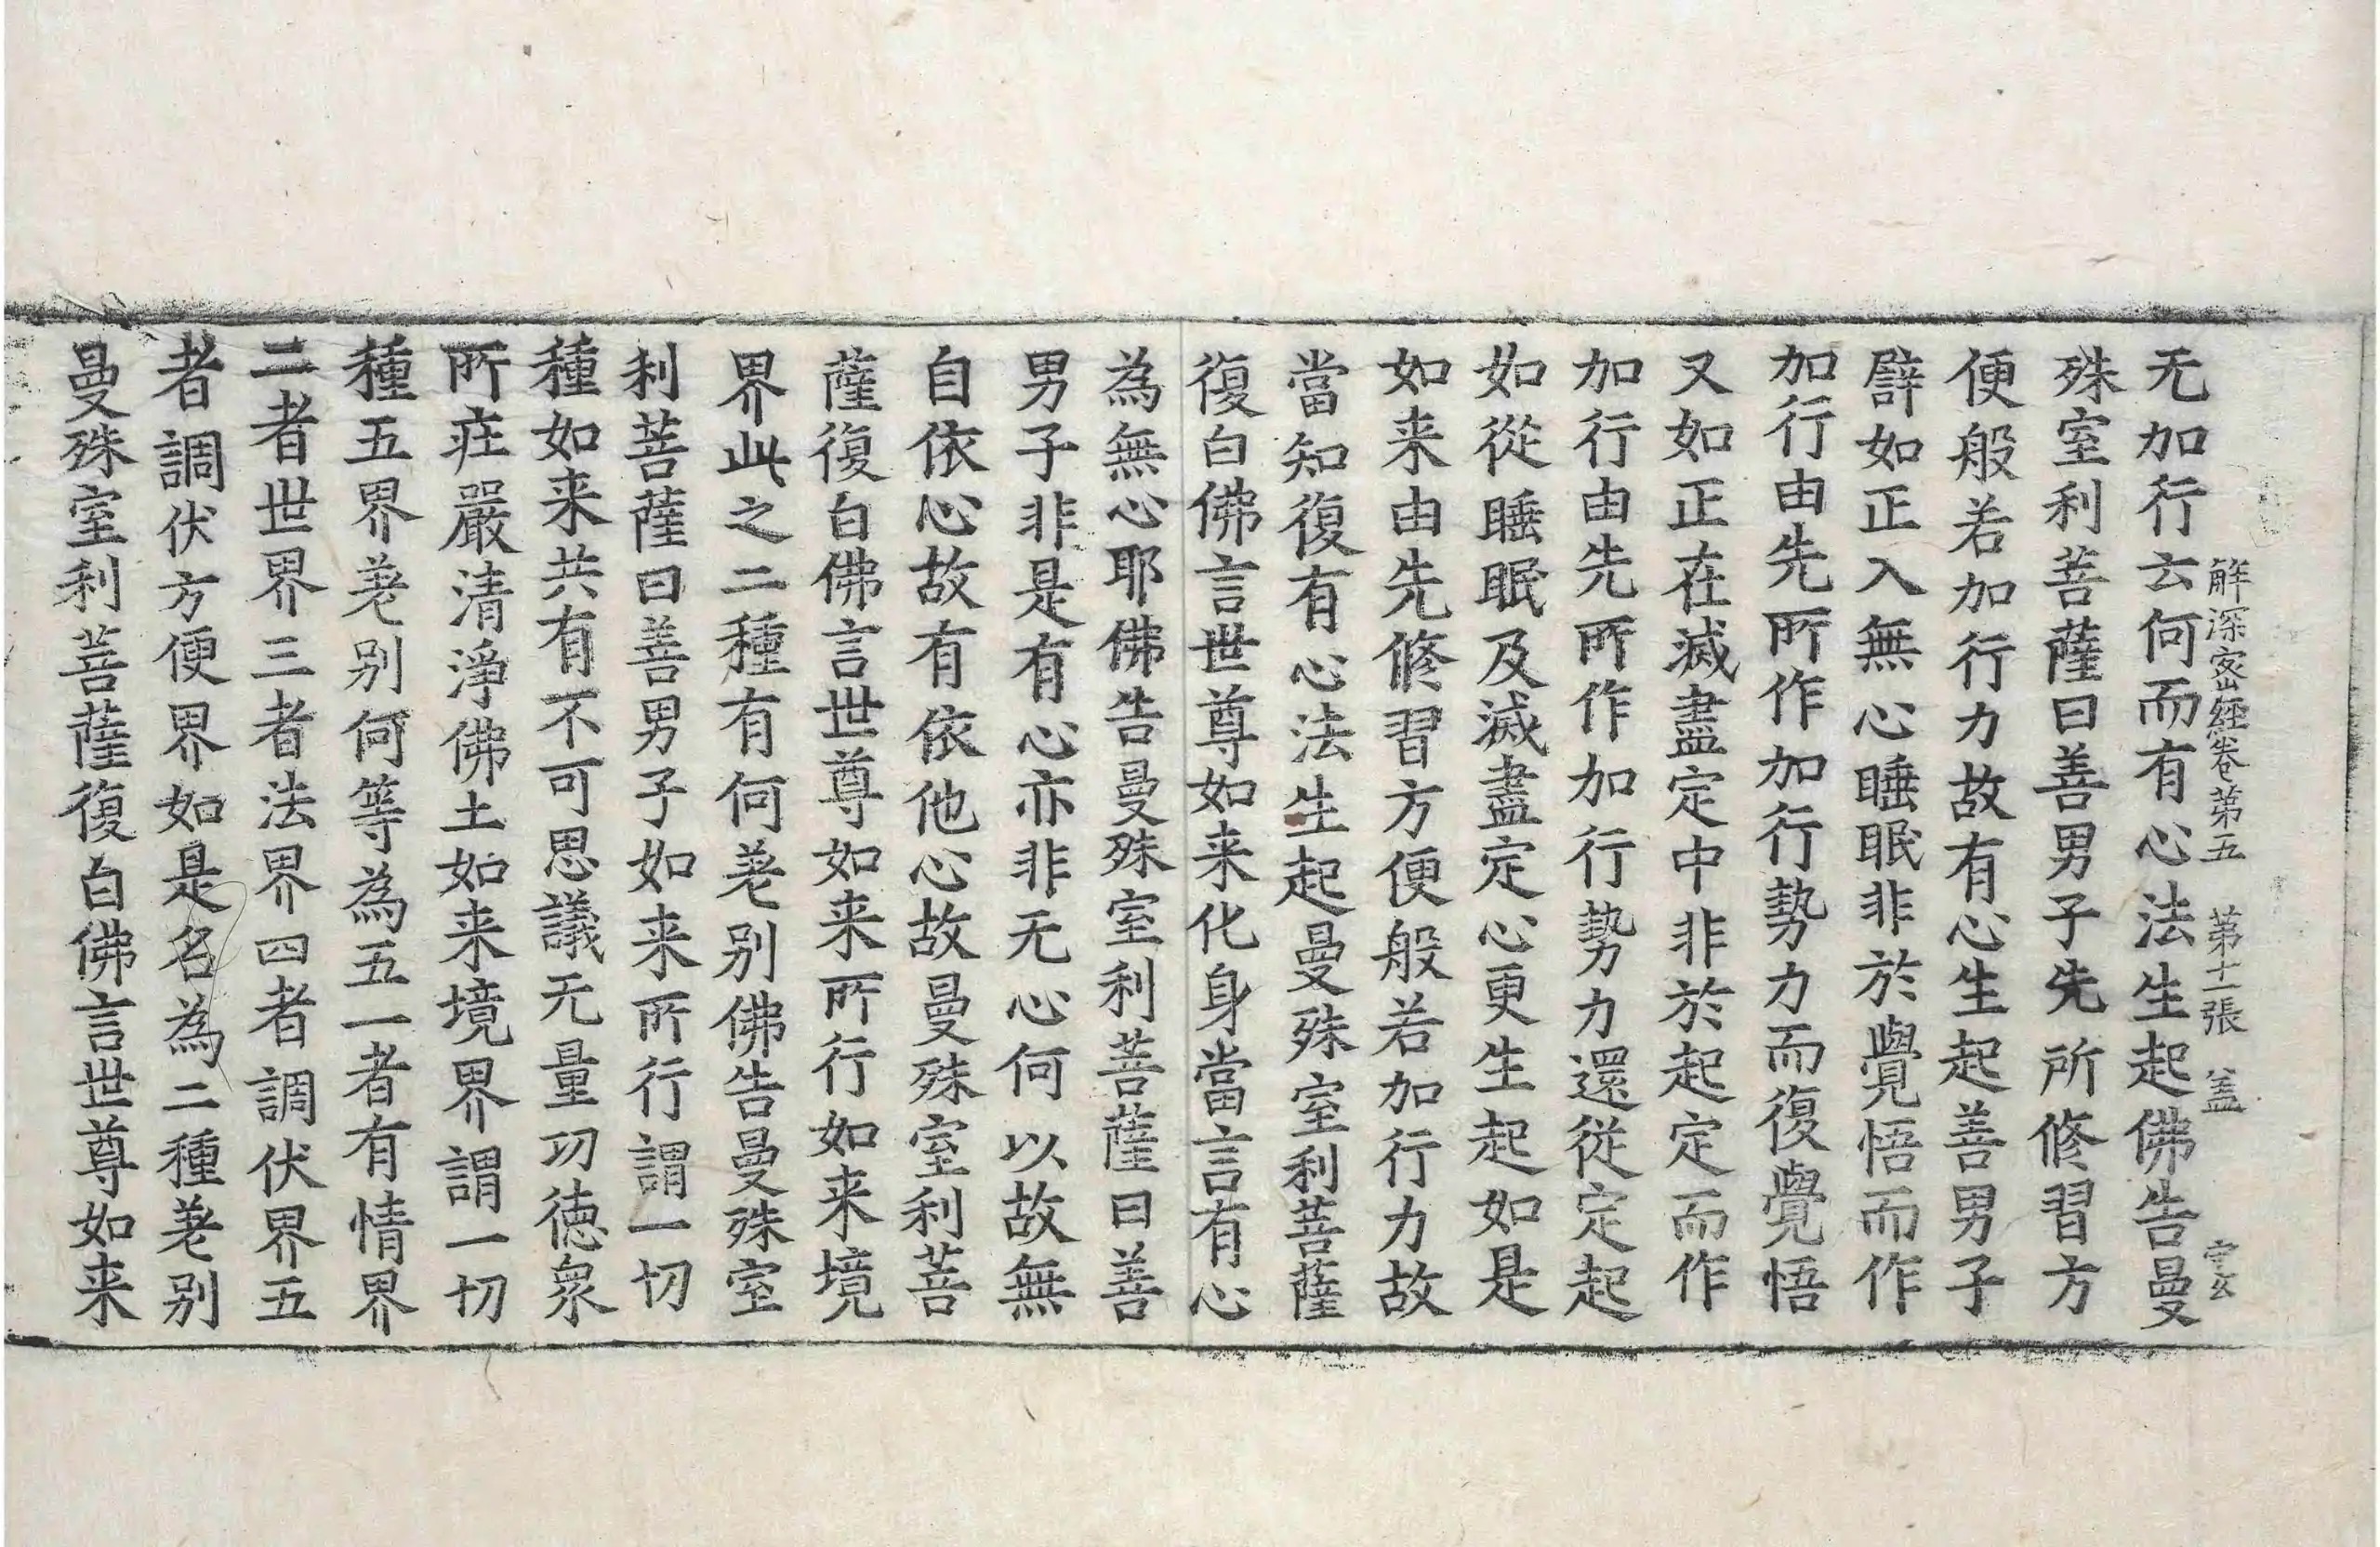 解深密經卷第五 第十一張 盖
无加行云何而有心法生起佛告曼
殊室利菩薩曰善男子先所修習方
便般若加行力故有心生起善男子
譬如正入無心睡眠非於覺悟而作
加行由先所作加行勢力而復覺悟
又如正在滅盡定中非於起定而作
加行由先所作加行勢力還從定起
如從睡眠及滅盡定心更生起如是
如来由先修習方便般若加行力故
當知復有心法生起曼殊室利菩薩
復白佛言世尊如来化身當言有心
為無心耶佛告曼殊室利菩薩曰善
男子非是有心亦非无心何以故無
自依心故有依他心故曼殊室利菩
薩復白佛言世尊如来所行如来境
界此之二種有何差别佛告曼殊室
利菩薩曰善男子如来所行謂一切
種如来共有不可思議无量功德衆
所莊嚴清淨佛土如来境界謂一切
種五界差别何等為五一者有情界
二者世界三者法界四者調伏界五
者調伏方便界如是名為二種差别
曼殊室利菩薩復白佛言世尊如来